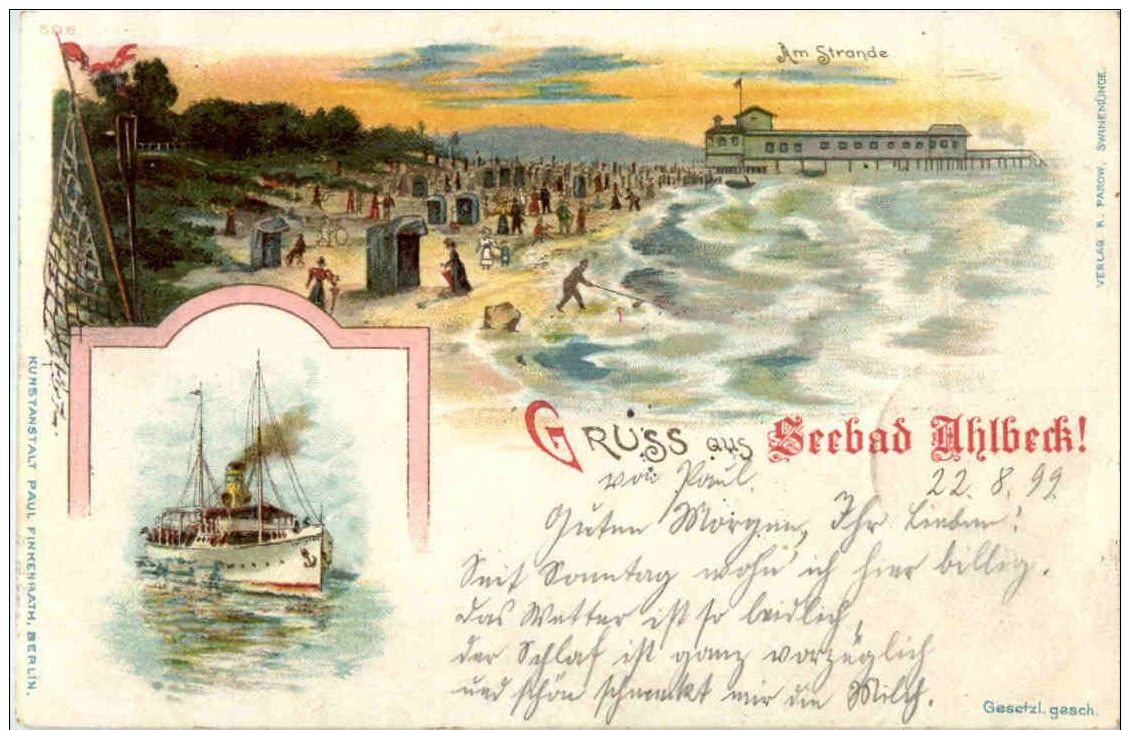 506
Am Strande
VERLAG R. PAROW, SWINEMÜNDE.
KUNSTANSTALT PAUL FINKENRATH, BERLIN.
GRUSS aus Seebad Ahlbeck!
von Paul. 22. 8. 99.
Guten Morgen, Ihr Lieben!
Seit Sonntag wohn' ich hier billig.
das Wetter ist so leidlich,
der Schlaf ist ganz vorzüglich
und schön schmeckt mir die Milch.
Gesetzl. gesch.